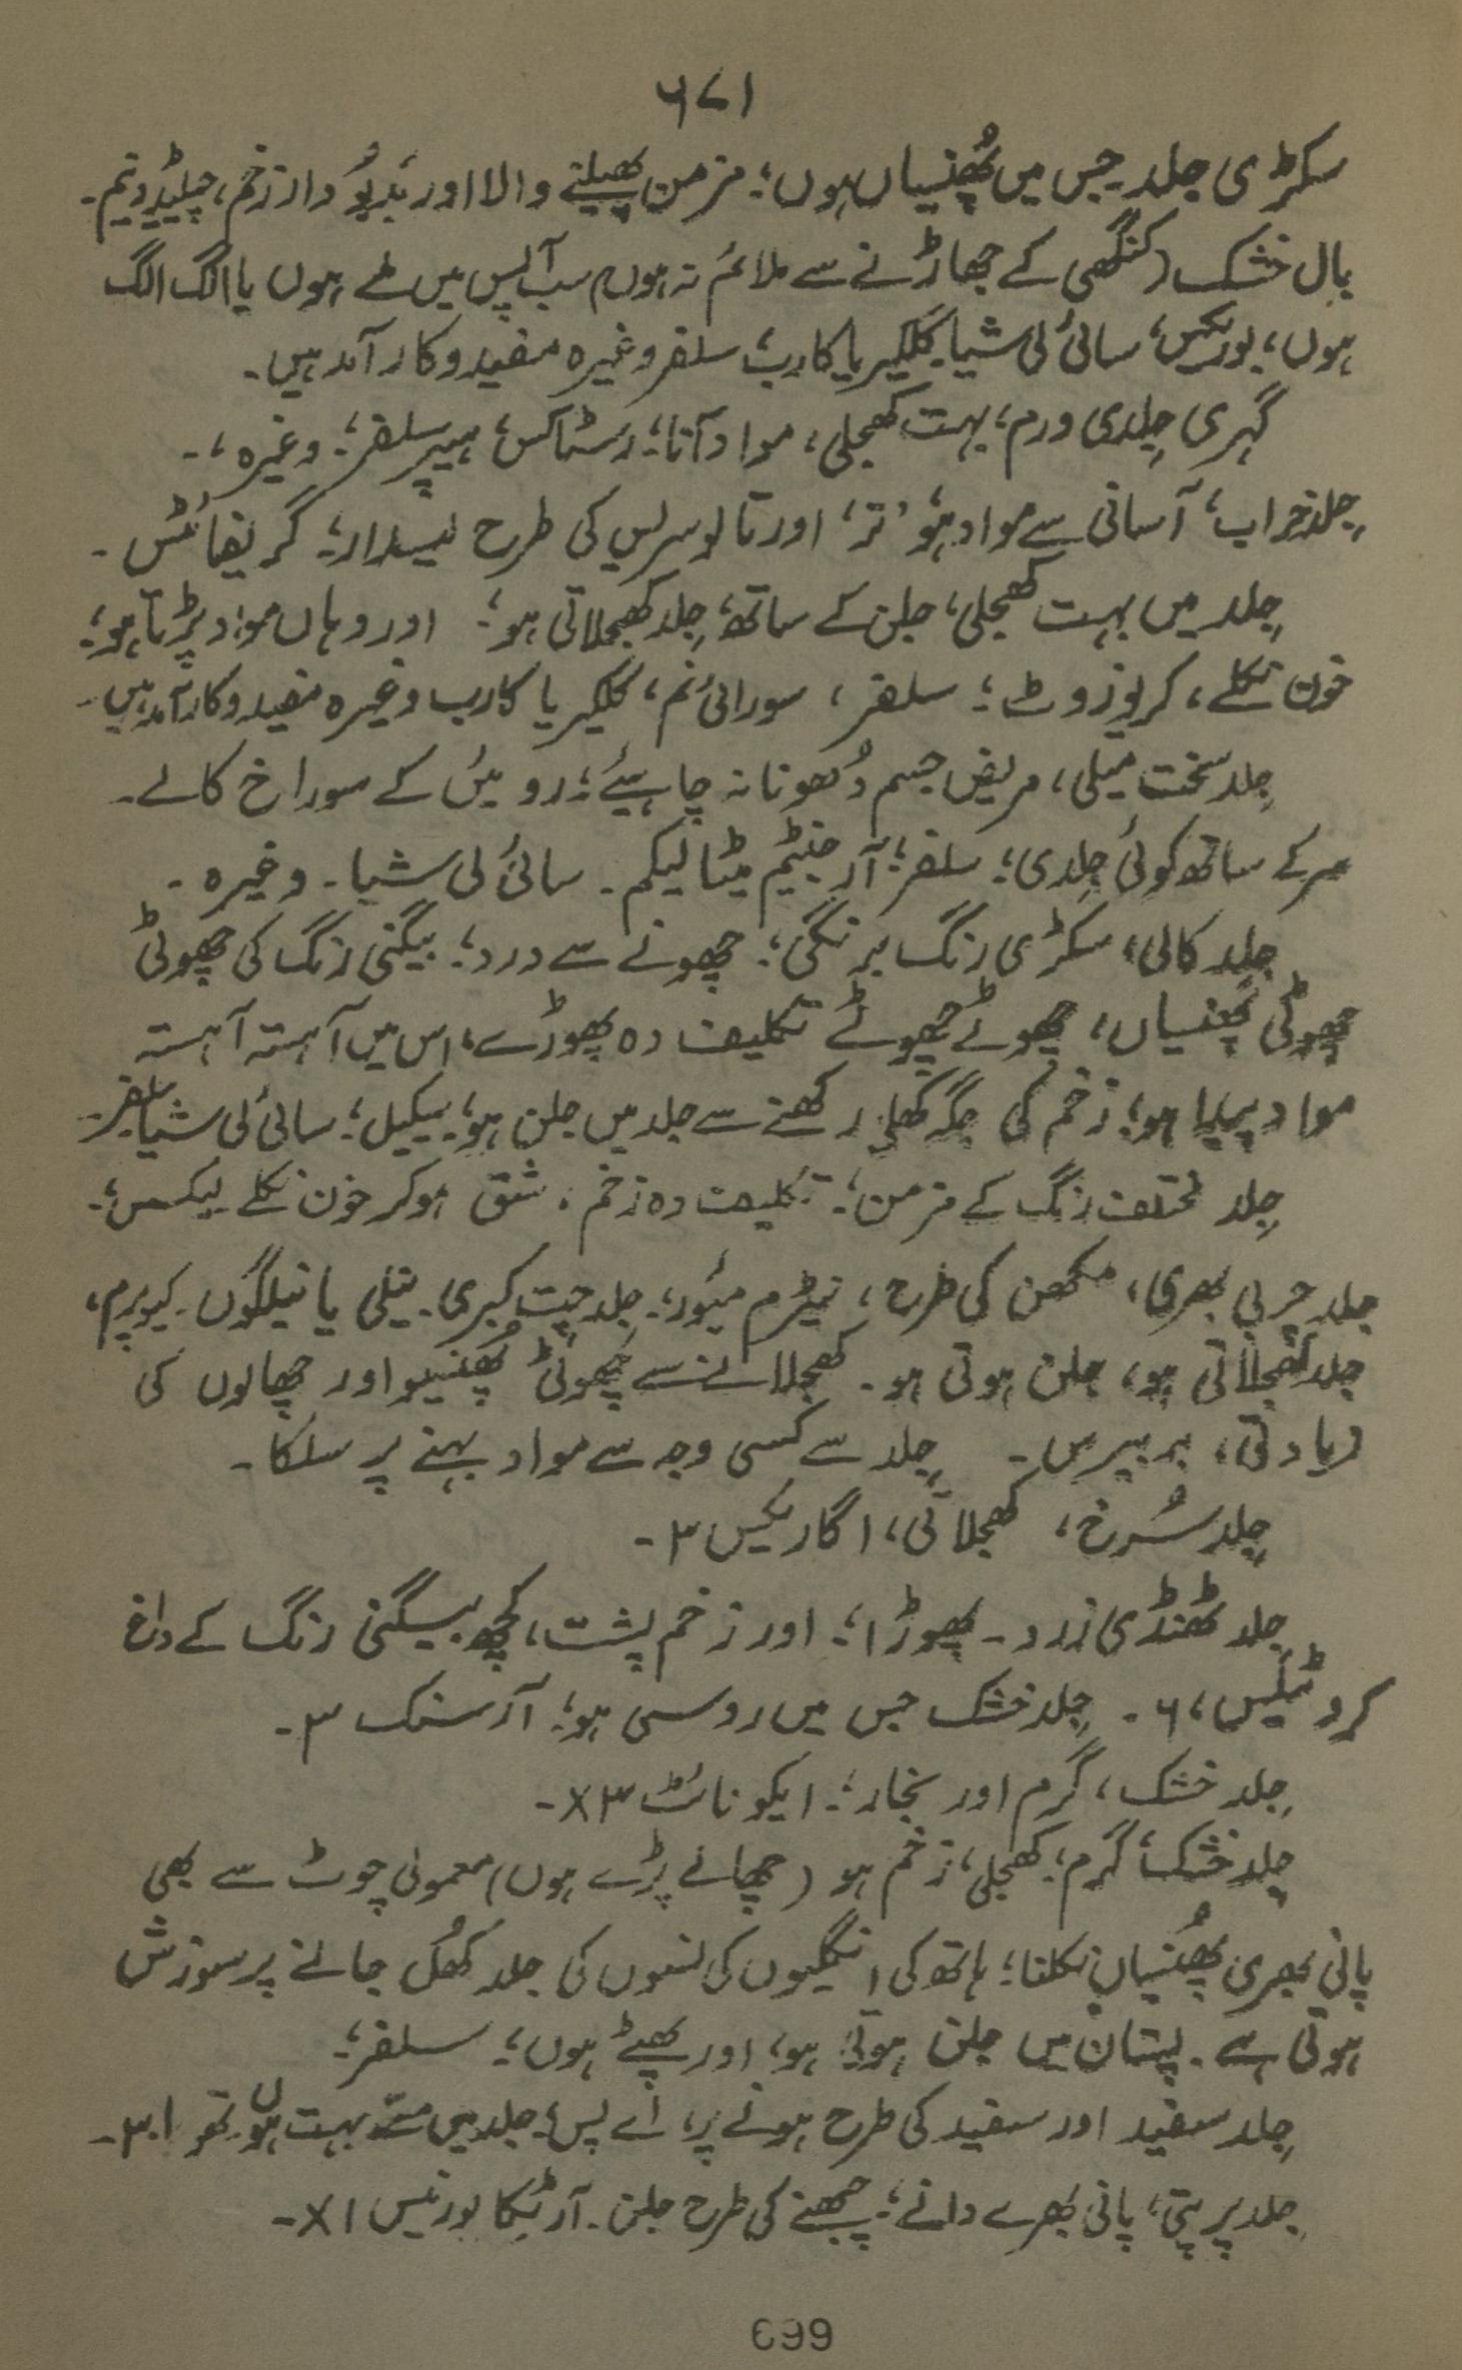 ۶۷۱
سکڑی جلد جس میں پُھنسیاں ہوں؛ مزمن پھیلنے والا اور بدبُو دار زخم، چیلیڈونیم۔
بال خشک (کنگھی کے جھاڑنے سے ملائم نہ ہوں) سب آپس میں ملے ہوں یا الگ الگ
ہوں؛ بوریکس، سائی لی شیا۔ کلکیریا کارب، سلفر وغیرہ مفید و کار آمد ہیں۔
گہری جِلدی ورم؛ بہت کھجلی، مواد آنا؛ رسٹاکس، ہیپر سلفر؛ وغیرہ،۔
جِلد خراب، آسانی سے مواد ہو، تر، اور تالو سریس کی طرح لیسدار؛ گریفائٹس۔
جِلد میں بہت کھجلی، جلن کے ساتھ، جِلد کھجلاتی ہو؛ اور وہاں مواد پڑتا ہو؛
خون نکلے، کریوزوٹ؛ سلفر، سورائنم، کلکیریا کارب وغیرہ مفید و کار آمد ہیں۔
جِلد سخت میلی، مریض جسم دُھونا نہ چاہیئے؛ روئیں کے سوراخ کالے۔
سر کے ساتھ کوئی جِلدی؛ سلفر؛ آرجنیٹم میٹالیکم۔ سائی لی شیا۔ وغیرہ۔
جِلد کالی، سکڑی رنگ برنگی؛ چھونے سے درد؛ بیگنی رنگ کی چھوٹی
چھوٹی پھنسیاں، چھوٹے چھوٹے تکلیف دہ پھوڑے، اس میں آہستہ آہستہ
مواد پیدا ہو؛ زخم کی جگہ کھلی رکھنے سے جلد میں جلن ہو؛ لیکیل؛ سائی لی شیا سلفر۔
جِلد مختلف رنگ کے مزمن؛ تکلیف دہ زخم، شق ہو کر خون نکلے لیکسس؛۔
جلد چربی بھری، مکھن کی طرح، نیٹرم میُور؛ جلد چت کبری۔ نیلی یا نیلگوں۔ کیوپرم،
جلد کھجلاتی ہو، جلن ہوتی ہو۔ کھجلانے سے چھوٹی پھنسیو اور چھالوں کی
زیادتی، بربیرس۔ جِلد سے کسی وجہ سے مواد بہنے پر سلکا۔
جِلد سُرخ، کھجلاتی، اگاریکس ۳۔
جِلد ٹھنڈی زرد۔ پھوڑا؛ اور زخم پشت، کچھ بیگنی رنگ کے داغ
کروٹیلس، ۶۔ جِلد خشک جس میں روسی ہو؛ آرسنک ۳۔
جِلد خشک، گرم اور بخار؛ ایکونائٹ ۳x۔
جلد خشک، گرم؛ کھجلی، زخم ہو (چھالے پڑے ہوں) معمولی چوٹ سے بھی
پانی بھری پُھنسیاں نکلنا؛ ہاتھ کی انگلیوں کی نسوں کی جلد کھُل جانے پر سوزش
ہوتی ہے۔ پستان میں جلن ہوتی ہو، اور پھٹے ہوں؛ سلفر؛
جِلد سفید اور سفید کی طرح ہونے پر، اے پس؛ جلد میں مسّے بہت ہوں تھوجا ۳۔
جلد پر پتی، پانی بھرے دانے؛ چبھنے کی طرح جلن۔ آرٹیکا یورنیس ۱x۔
699